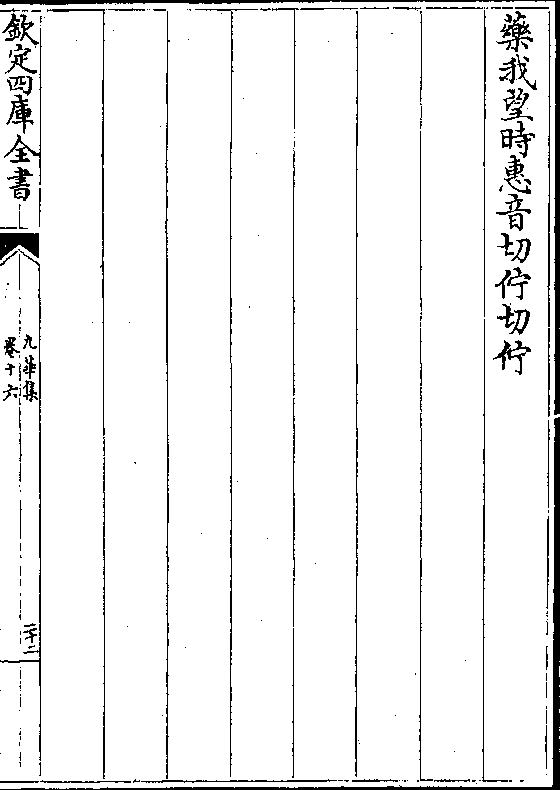 藥我望時惠音切佇切佇
欽定四庫全書
九華集
卷十六
二十二